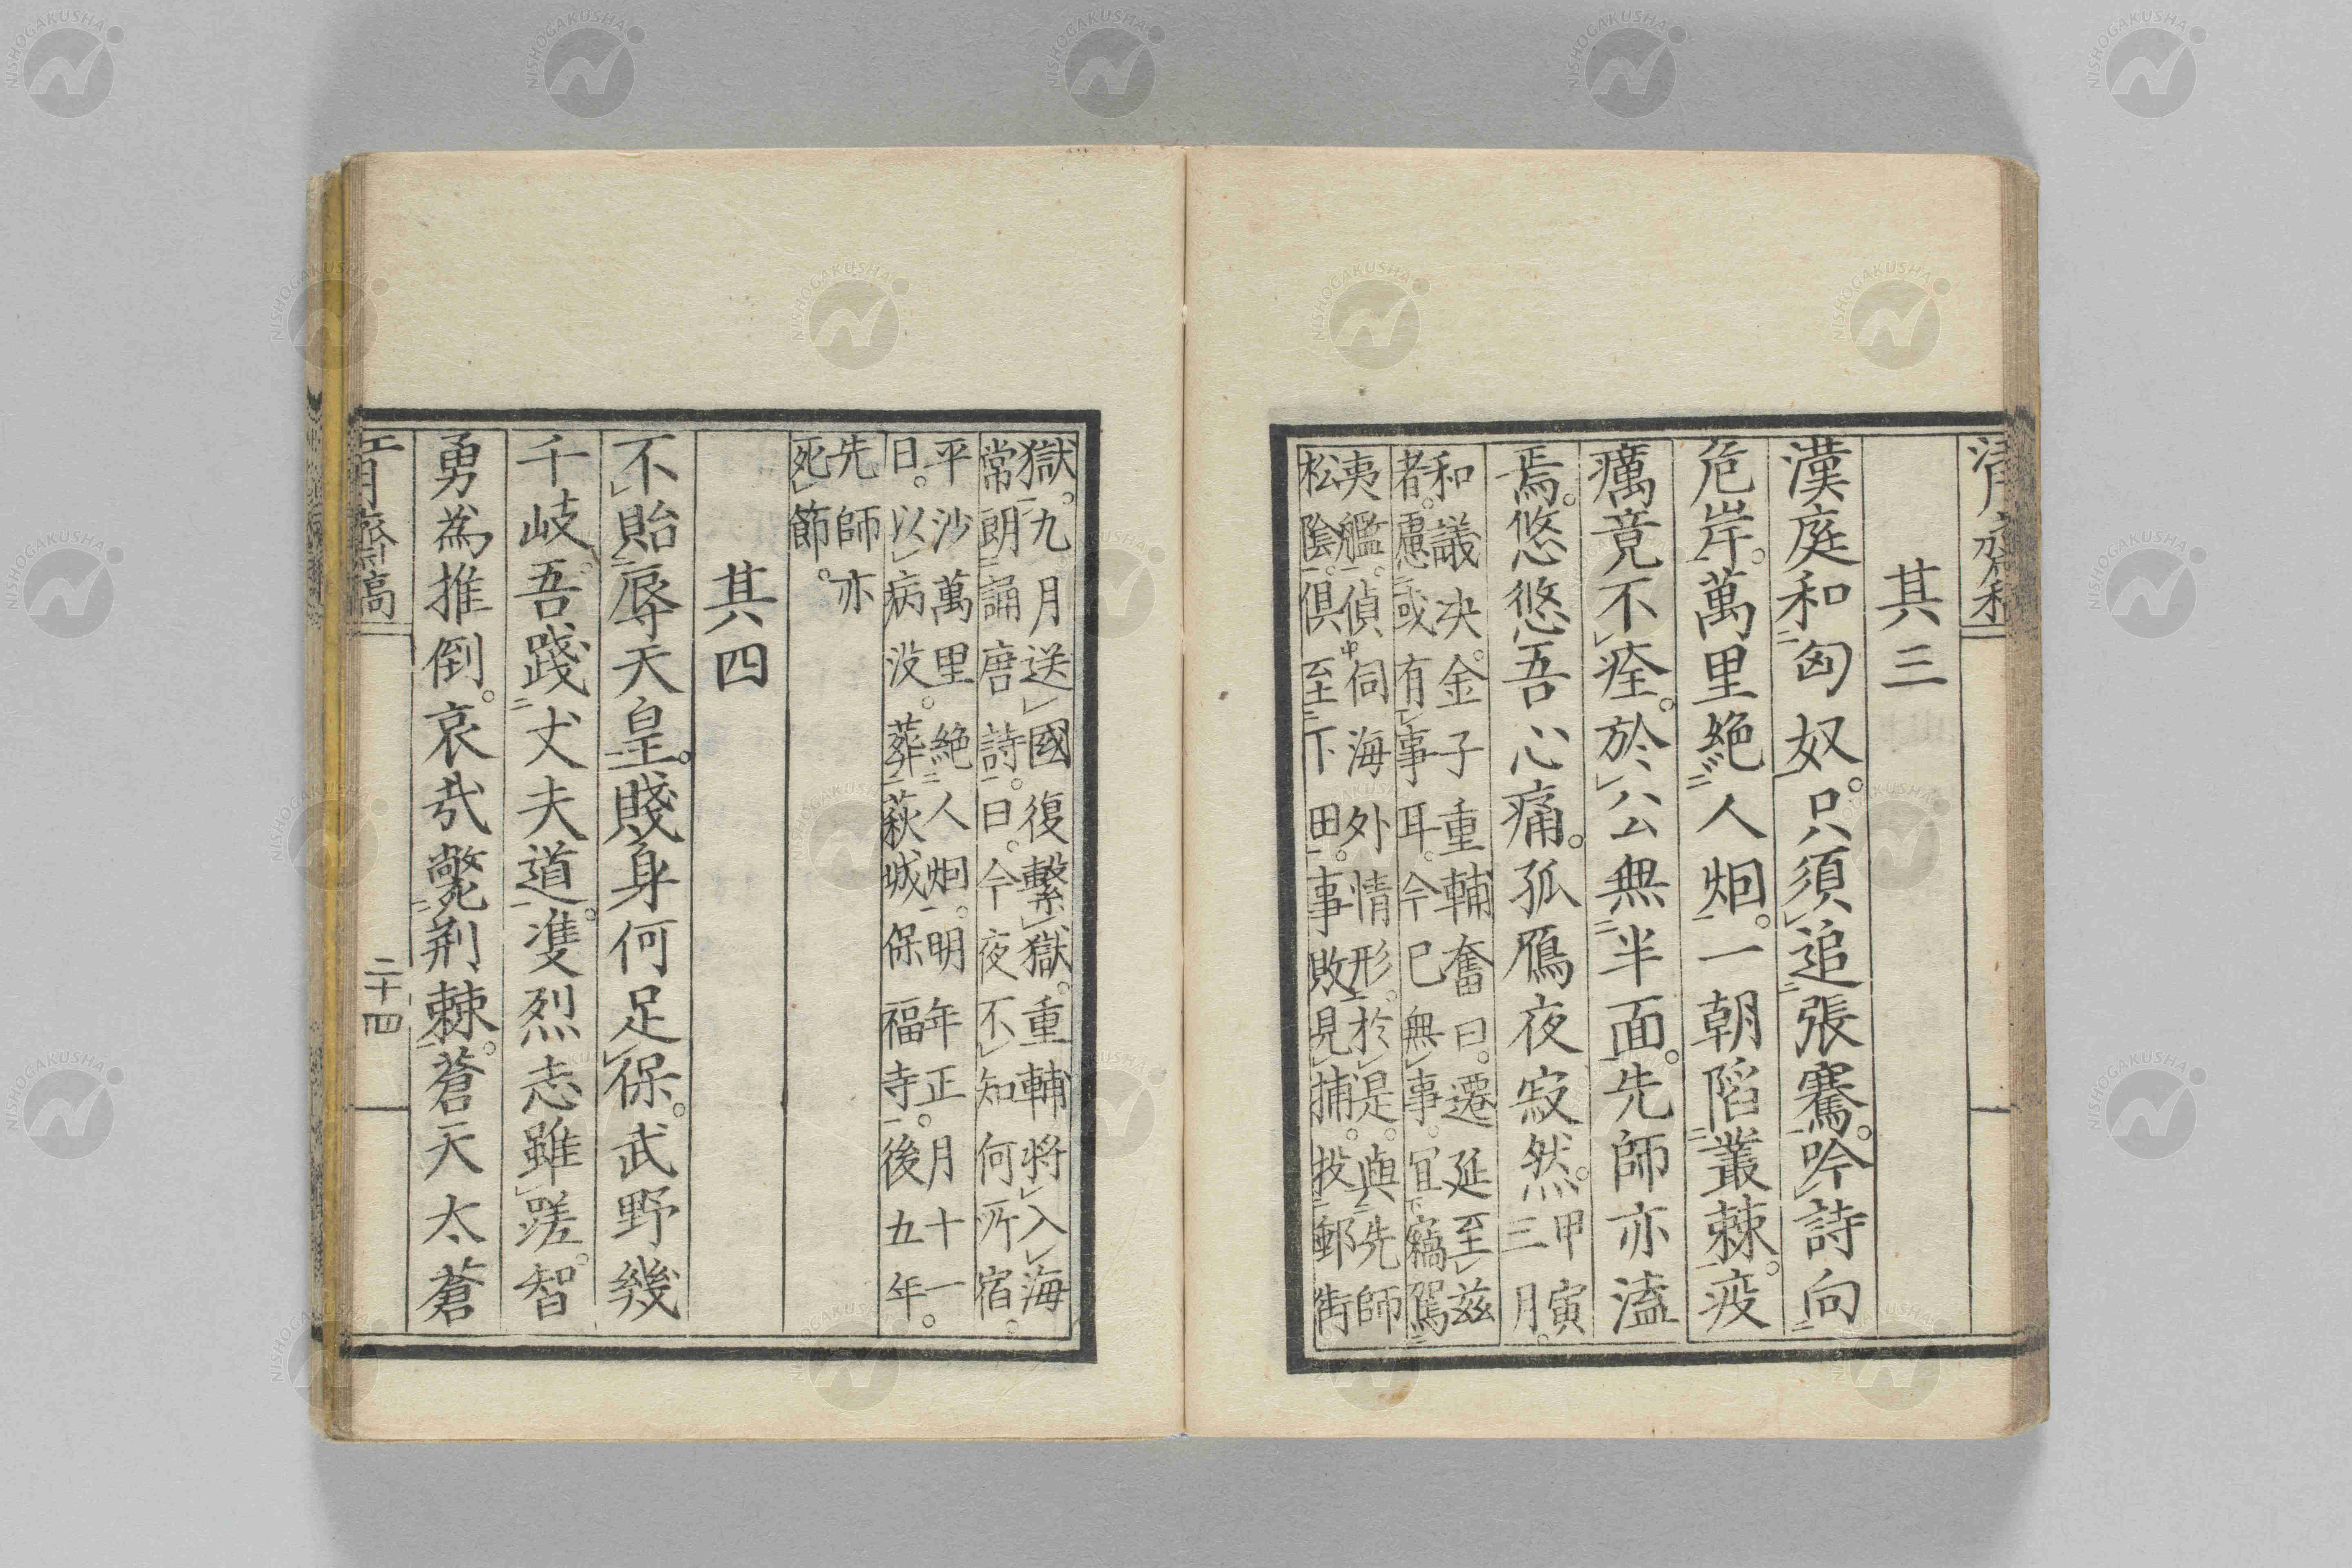 其三
漢庭和匈奴。只須追張騫。吟詩向
危岸。萬里絶人烟。一朝陷叢棘。疫
癘竟不痊。於公無半面。先師亦溘
焉。悠悠吾心痛。孤鴈夜寂然。甲寅
三月。
和議决。金子重輔奮曰。遷延至兹
者。慮或有事耳。今已無事。冝竊駕
夷艦。偵伺海外情形。於是。與先師
松陰。俱至下田。事敗見捕。投郵街
獄。九月送國復繫獄。重輔將入海
常朗誦唐詩。曰。今夜不知何所宿。
平沙萬里絶人烟。明年正月十一
日。以病没。葬萩城保福寺。後五年。
先師亦
死節。
其四
不貽辱天皇。賤身何足保。武野幾
千岐。吾踐丈夫道。雙烈志雖蹉。智
勇為推倒。哀哉斃荆棘。蒼天太蒼
二十四